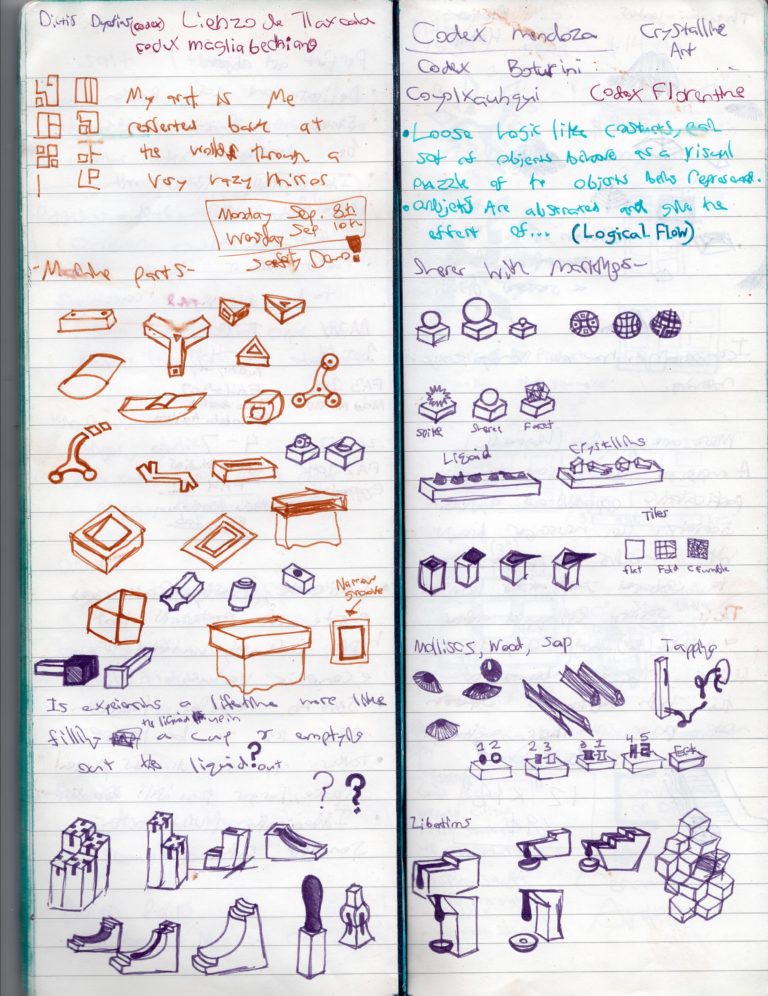 (codex) Lienzo de Tlaxcala
codex magliabechiano
My art is Me
reflected back at
the world through a
very crazy mirror
Monday Sep. 8th
Sep 10th
-Machine parts-
Narrow
groove
Is expeiencing a lifetime more like
the liquid up in
filling a cup or emptying
out the liquid? out
? ?
Codex mendoza
Crystalline
Art
Codex Boturini
Coyolxauhqui
Codex Florentine
• Loose Logic like
set of objects behave as a visual
puzzle of the objects being represent.
• objects Are abstrated and give the
effect of... (Logical Flow)
with markings-
Spike
Facet
Liquid
Crystalline
Tiles
flat Fold Crumble
wood, sap
Tapping
1 2
2 3
3 1
4 5
Libations